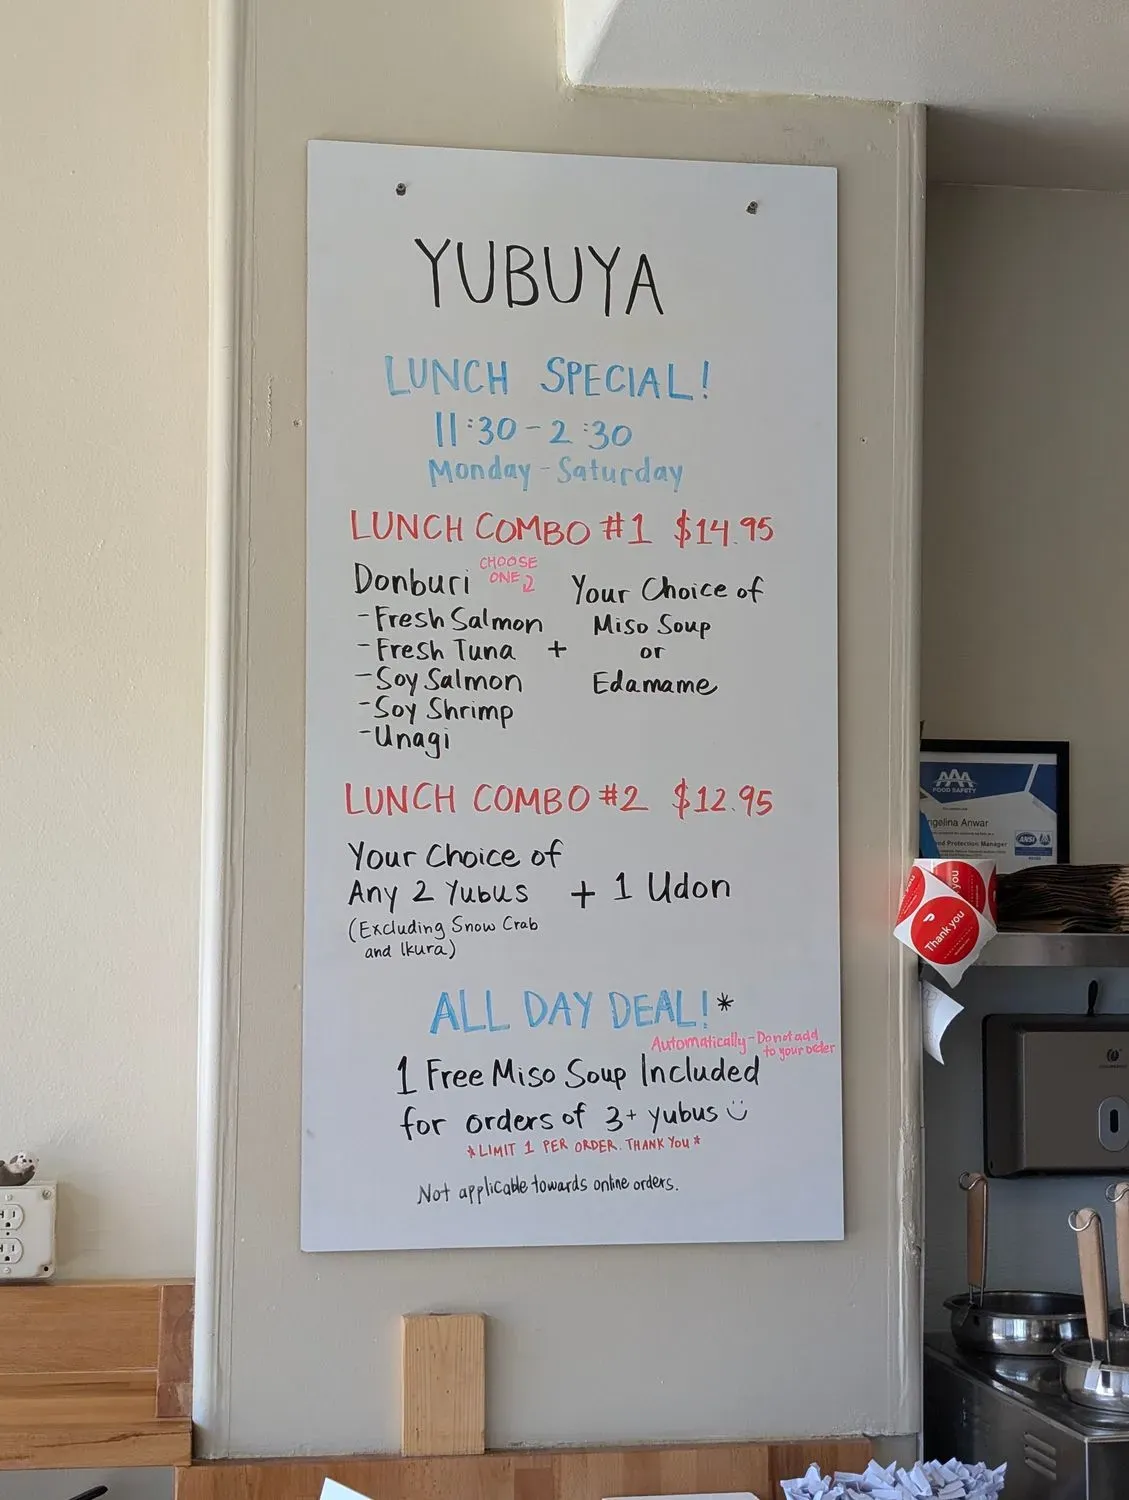 YUBUYA
LUNCH SPECIAL!
11:30-2:30
Monday-Saturday
LUNCH COMBO #1 $14.95
Donburi CHOOSE
ONE
- Fresh Salmon
- Fresh Tuna
- Soy Salmon
- Soy Shrimp
- Unagi
+
Your Choice of
Miso Soup
or
Edamame
LUNCH COMBO #2 $12.95
Your Choice of
Any 2 Yubus + 1 Udon
(Excluding Snow Crab
and Ikura)
ALL DAY DEAL!*
Automatically - Do not add
to your order
1 Free Miso Soup Included
for orders of 3+ yubus
*LIMIT 1 PER ORDER. THANK YOU*
Not applicable towards online orders.
AAA
FOOD SAFETY
ngelina Anwar
od Protection Manager
ANSI
you
Thank you